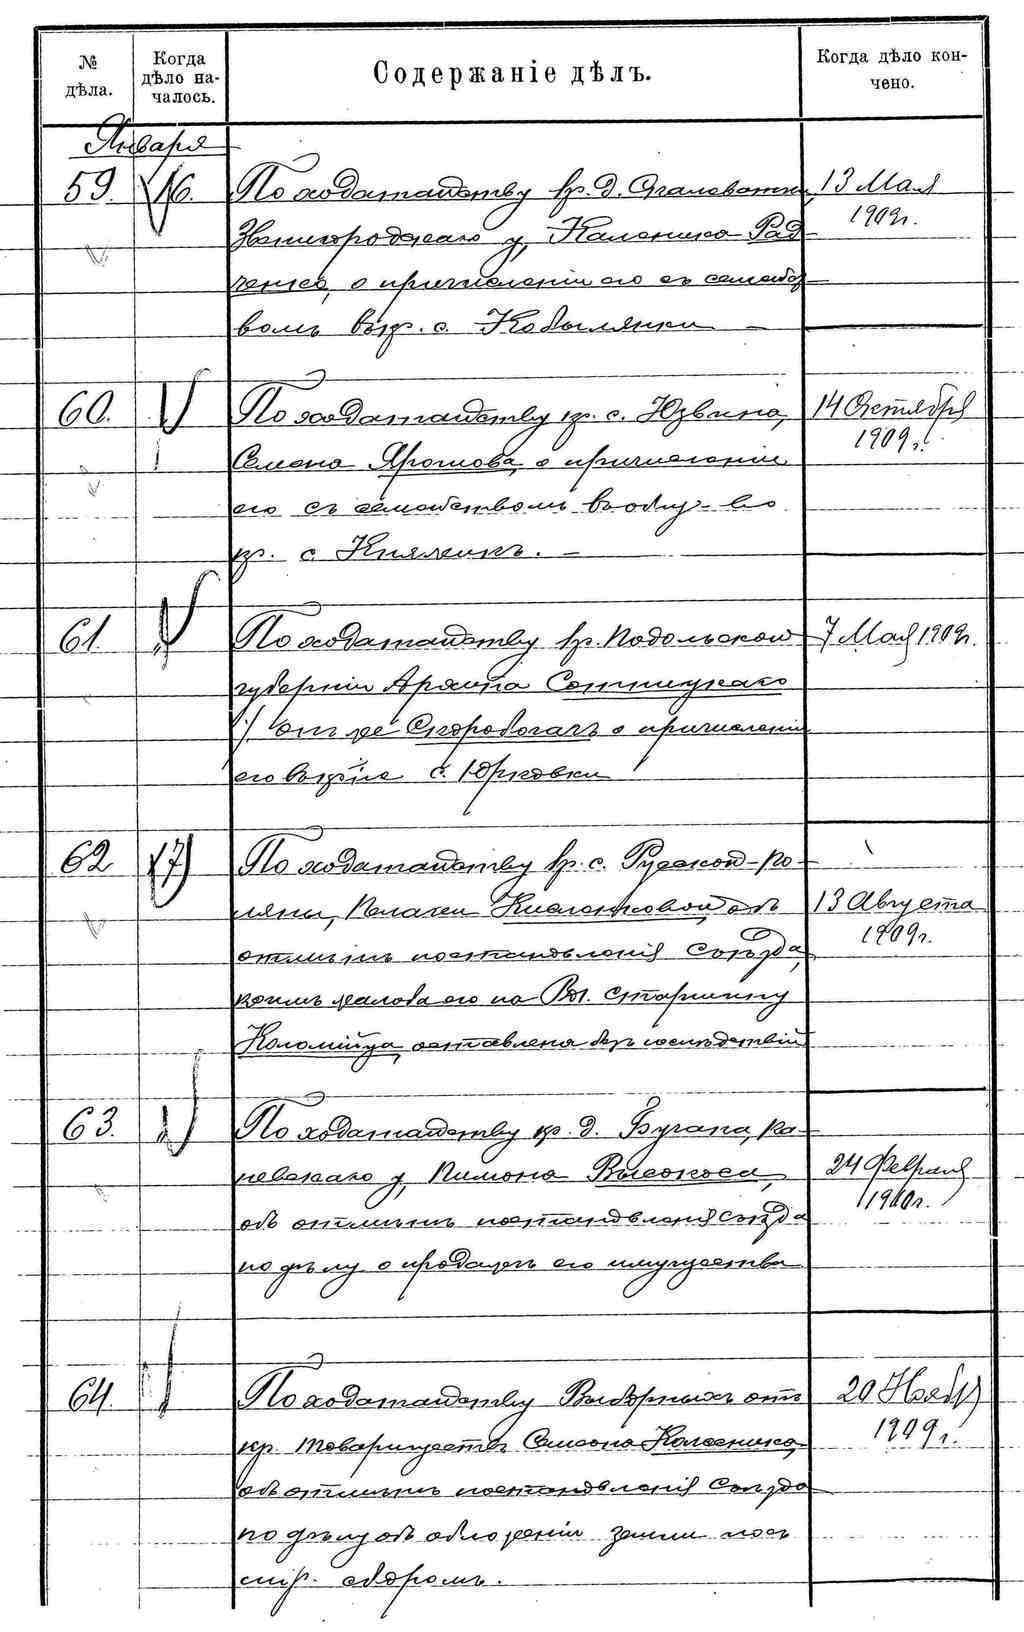 № дѣла.
Когда дѣло началось.
Содержаніе дѣлъ.
Когда дѣло кончено.
Января
59. 16. По ходатайству кр. д.
Звенигородскаго у, Каленика Рад-
ченко, о причисленіи его съ семейст-
вомъ въ кр. с. Кобылянки
13 Мая
1909г.
60. По ходатайству кр. с. Юзвина,
Семена Ярошова, о причисленіи
его съ семействомъ въ общ-во
кр. с. Княжикъ.
14 Октября
1909г.
61. По ходатайству кр. Подольской
губерніи Архипа Сотницкаго
онъ же Скоробогачъ о причисленіи
его въ с. Юрковки
7 Мая 1909г.
62 17 По ходатайству кр. с. Русской-По-
ляны, Пелагеи об
отмѣнѣ постановленія Съѣзда,
коимъ жалоба его на Вол. старшину
Коломійца, оставлена безъ послѣдствій
13 Августа
1909г.
63. По ходатайству кр. д. Бугана, Ка-
невскаго у, Пимона Высокоса,
объ отмѣнѣ постановленія Съѣзда
по дѣлу о продажѣ его имущества
24 Февраля
1910г.
64. По ходатайству Выборныхъ отъ
кр. товариществъ Семена Колесника,
объ отмѣнѣ постановленія Съѣзда
по дѣлу объ обложеніи земли
мір. сборомъ.
20 Ноябр
1909г.